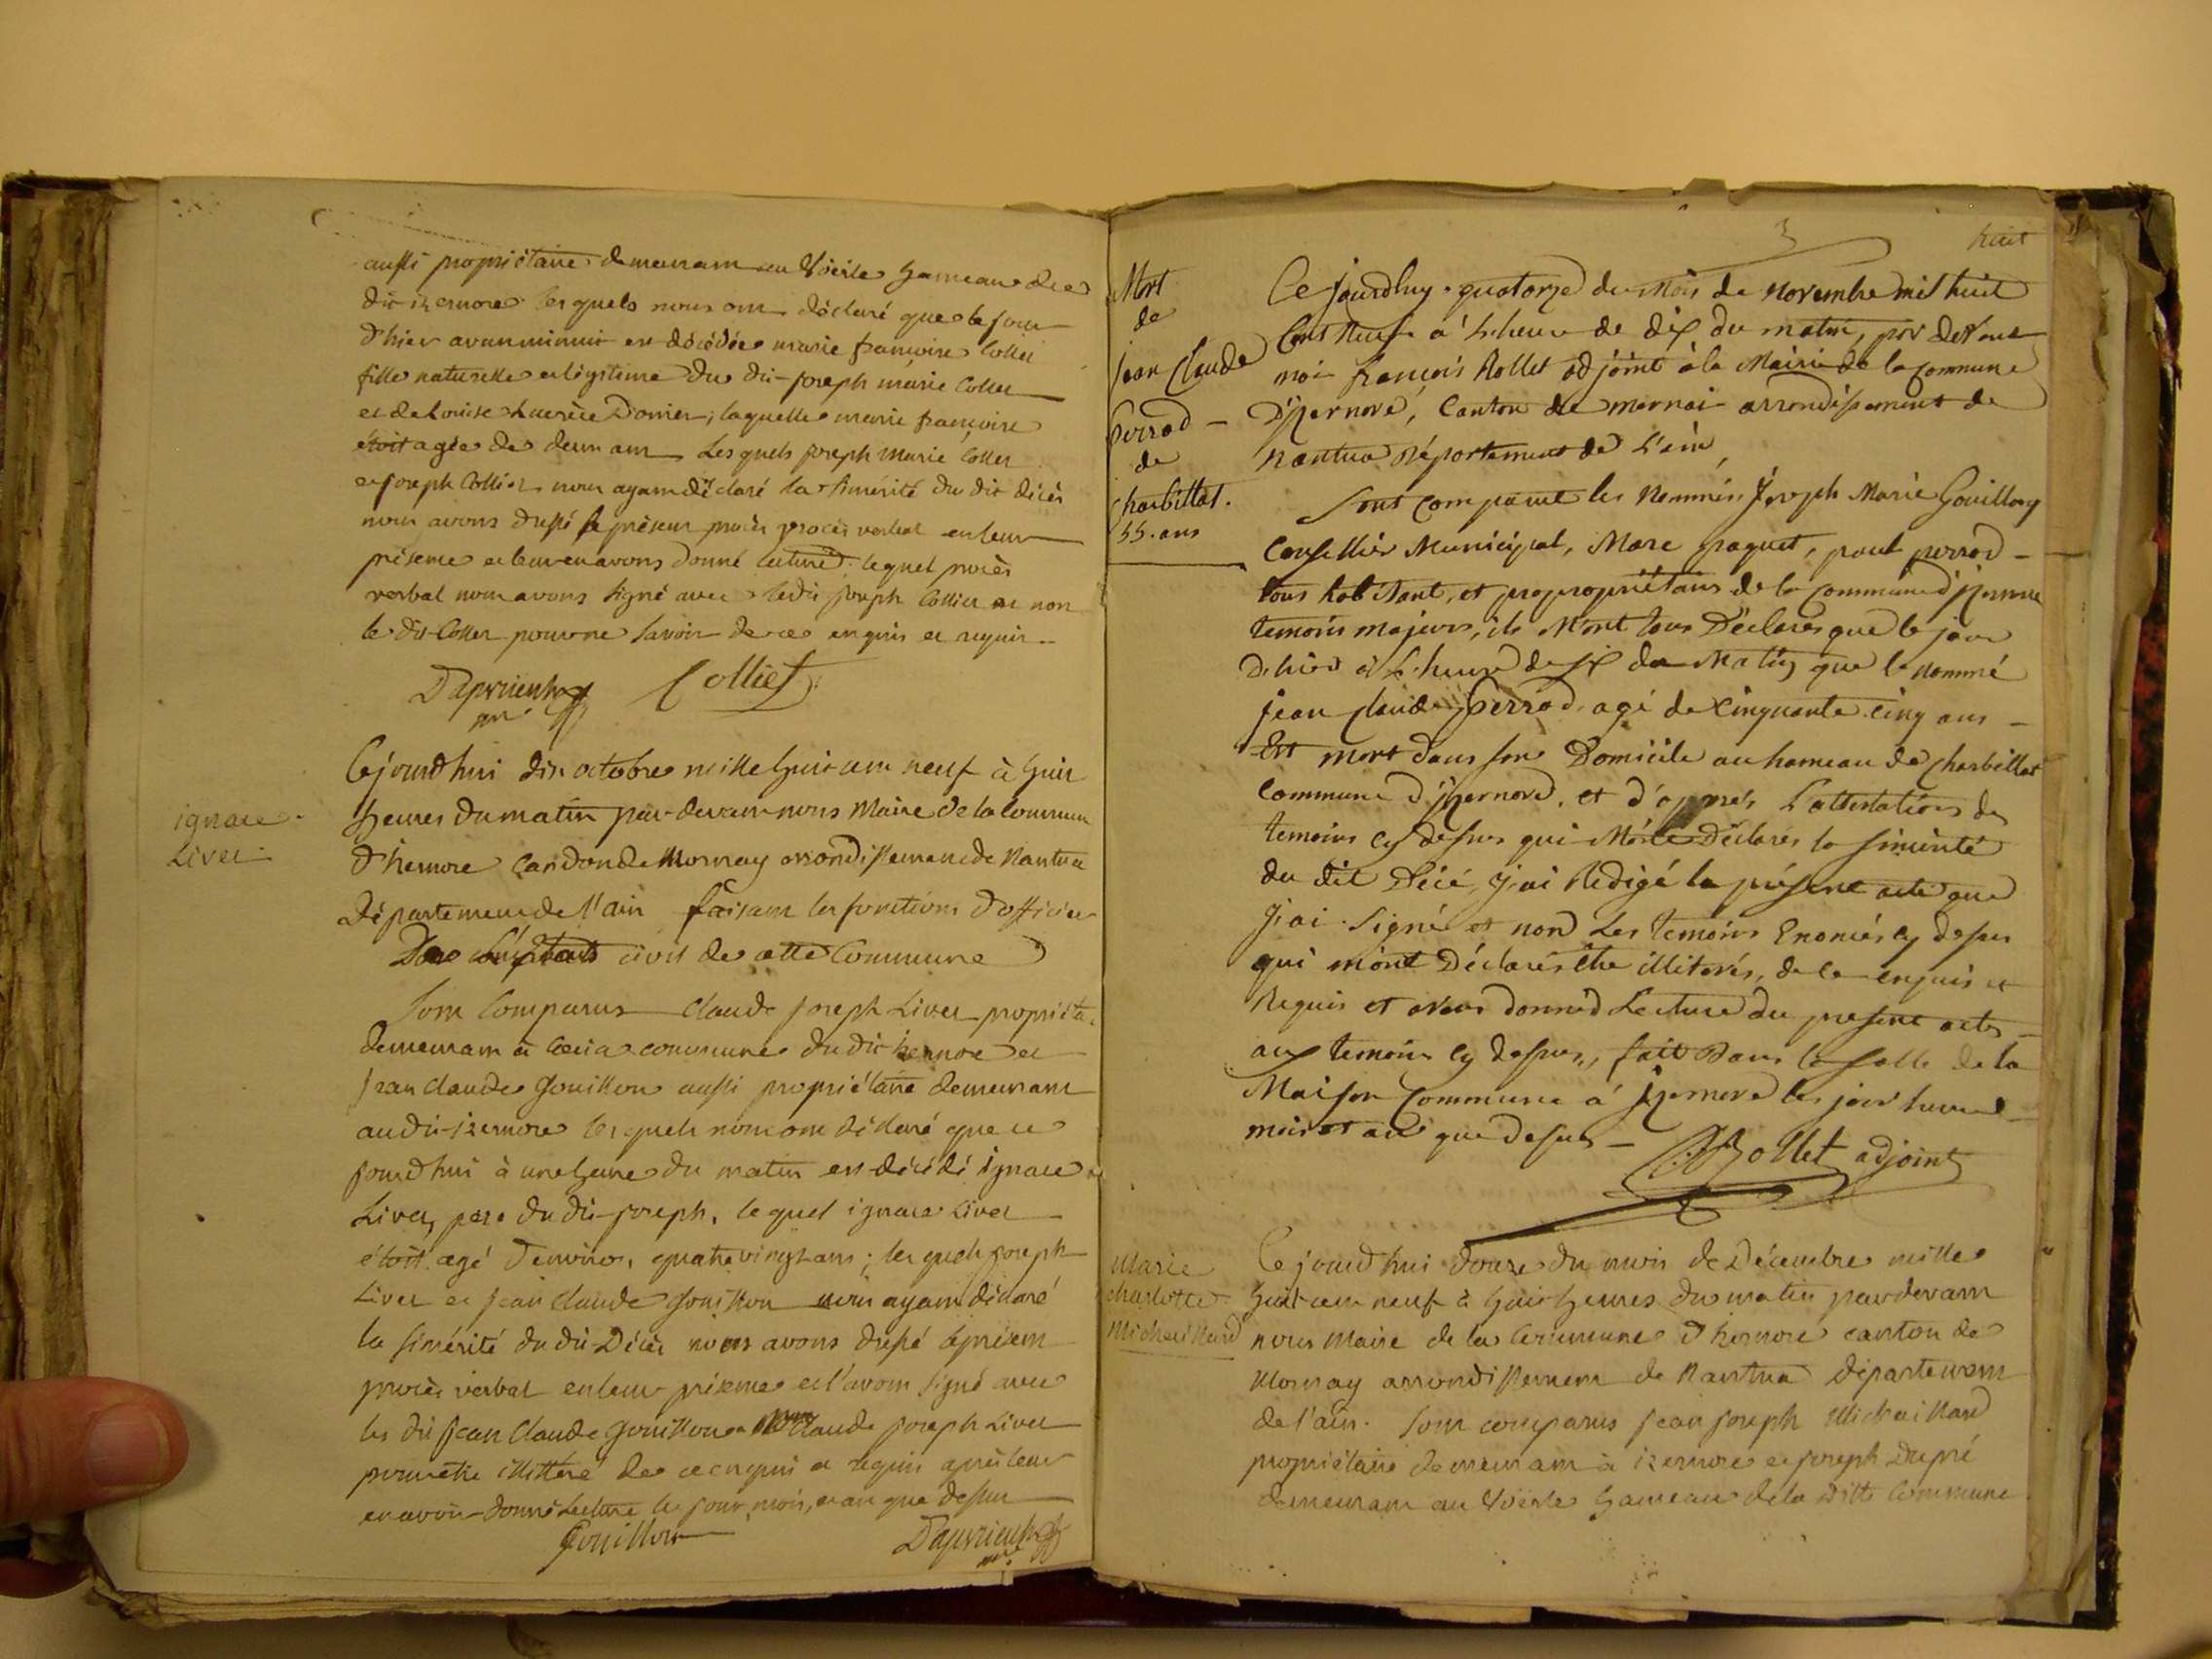 aussi propriétaire demeurant au Voërle hameau de
dit izernore lesquels nous ont déclaré que le jour
d'hier avant minuit est décédée marie françoise Collet
fille naturelle et légitime du dit joseph marie Collet
et de Louise Lucrèce laquelle marie françoise
étoit agée de deux ans Lesquels joseph Marie Collet
et joseph Colliet nous ayant déclaré la sincérité du dit décès
nous avons dressé le présent procès verbal en leur
présence et leur en avons donné lecture, lequel procès
verbal nous avons signé avec ledit joseph Colliet et non
le dit Collet pour ne savoir de ce enquis et requis
Colliet
ignace
Livet
Cejourd'hui dix octobre mille huit cent neuf à huit
heures du matin par devant nous Maire de la Commune
d'hernore Candon de Mornay arrondissement de Nantua
département de l'ain faisant les fonctions d'officier
civil de cette Commune
Sont Comparus Claude joseph Livet propriéta.
demeurant à Ceria commune du dit izernore et
jean claude Gouillon aussi propriétaire demeurant
au dit izernore lesquels nous ont déclaré que ce
jourd'hui à une heure du matin est décédé ignace
Livet, père du dit joseph, lequel ignace Livet
étoit agé d'environ quatre vingt ans ; lesquels joseph
Livet et jean claude Gouillon nous ayant déclaré
la sincérité du dit Décès nous avons dressé le présent
procès verbal en leur présence et l'avons signé avec
les dit jean Claude Gouillon et non Claude joseph Livet
pour être illittéré de ce enquis et requis après leur
en avoir donné Lecture les jour, mois, et an que dessus
Gouillon
huit
Mort
de
jean Claude
perrod -
de
Charbillat.
55. ans
Ce jourdhuy quatorze du mois de Novembre mil huit
Cent Neuf à L'heure de dix du matin, par devant
moi françois Rollet adjoint à la Mairie de la Commune
D'izernore, Canton de mornai arrondissement de
Nantua département de L'ain,
Sont Comparut les Nommés Joseph Marie Gouillon
Conseillier Municipal, Mare paquet, paul perrod -
tous habitant, et propropriétairs de la Commune d'izernore
temoins majeurs, ils M'ont tous Déclarés que le jour
D'hier à L'heure de six du Matin que le nommé
jean Claude perrod agé de Cinquante cinq ans -
Est mort dans son Domicile au hameau de Charbillat
Commune d'izernore, et d'après L'attestations des
temoins cy dessus qui M'onts Déclarés la sincérité
du dit Décé, j'ai Rédigé le présent acte que
j'ai signé et non Les temoins Enoncés cy dessus
qui m'ont Déclarés être illiterés, de ce enquis et
Requis et avons donné Lecture du present acte -
aux temoins cy dessus, fait dans la salle de la
Maison Commune à izernore les jour heure
mois et an que dessus - Rollet adjoint
Marie
charlotte
Michaillard
Cejourd'hui douze du mois de Décembre mille
huit cent neuf à huit heures du matin pardevant
nous Maire de la Commune d'hernore canton de
Mornay arrondissement de Nantua département
de l'ain. Sont comparus jean joseph Michaillard
propriétaire demeurant à izernore et joseph Dupré
demeurant au Voërle hameau de la ditte Commune